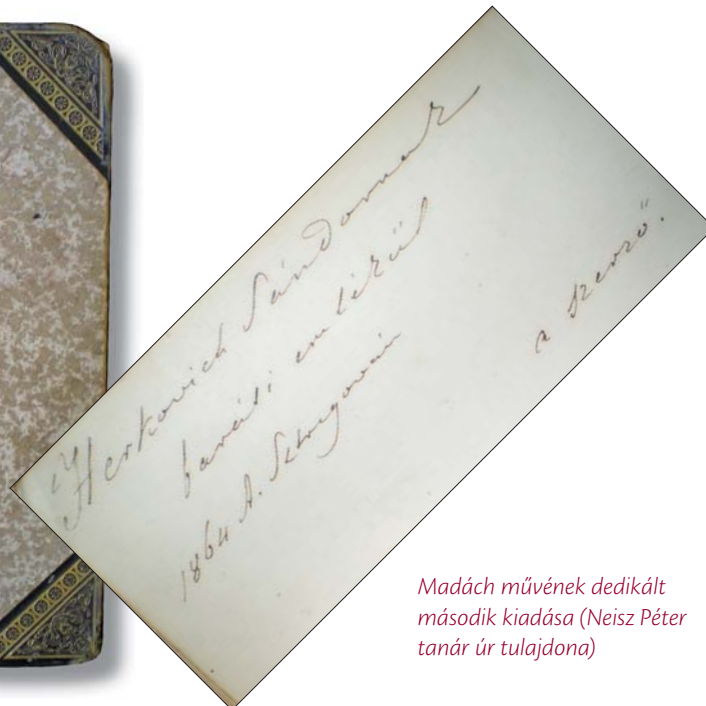 Herkovich Sándornak
baráti emlékül
1864 A. Sztregován
a szerző.
Madách művének dedikált
második kiadása (Neisz Péter
tanár úr tulajdona)